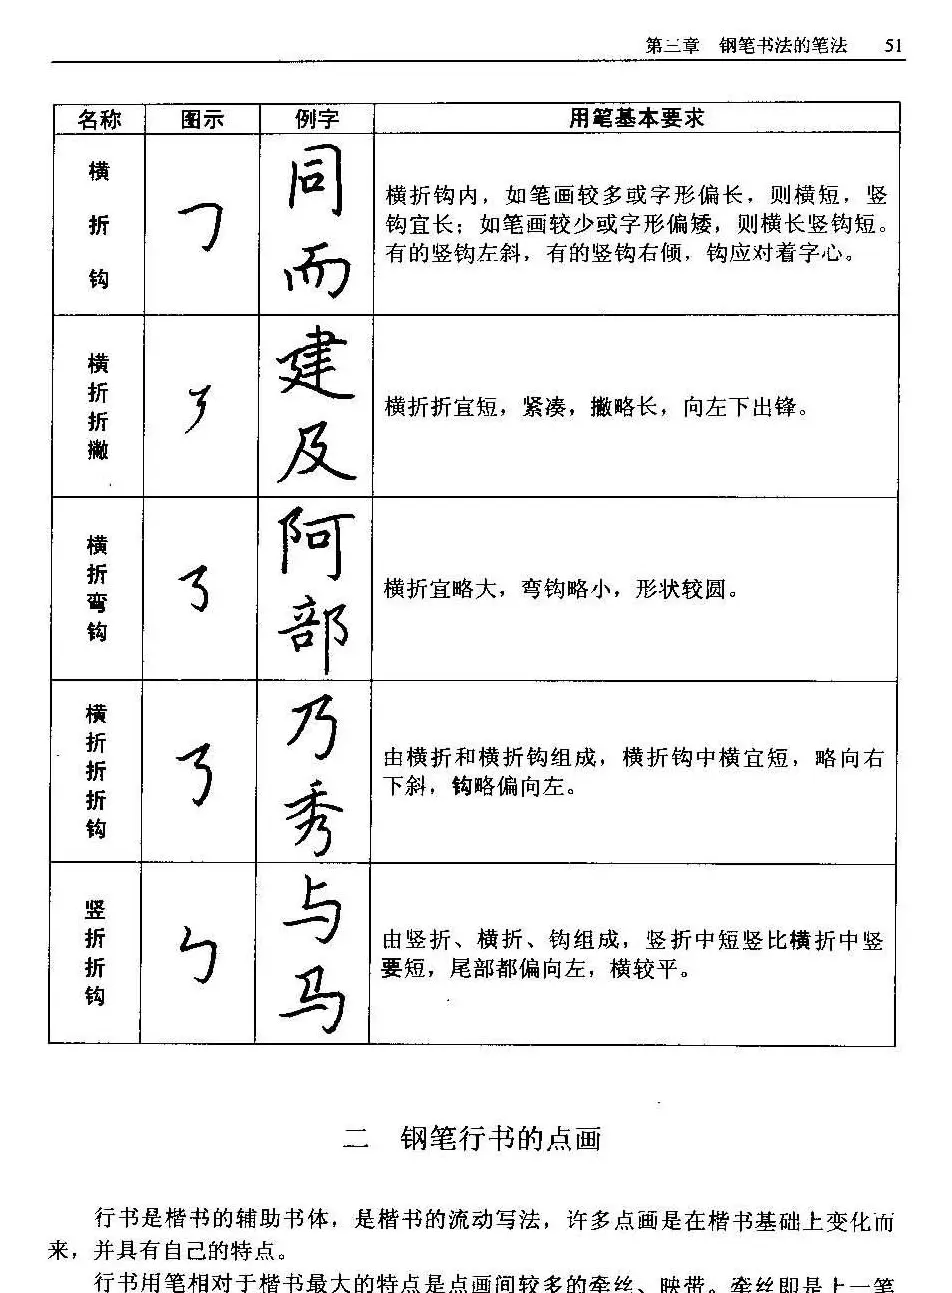 第三章 钢笔书法的笔法 51
名称 图示 例字 用笔基本要求
横折钩
同而
横折钩内，如笔画较多或字形偏长，则横短，竖
钩宜长；如笔画较少或字形偏矮，则横长竖钩短。
有的竖钩左斜，有的竖钩右倾，钩应对着字心。
横折折撇
建及
横折折宜短，紧凑，撇略长，向左下出锋。
横折弯钩
阿部
横折宜略大，弯钩略小，形状较圆。
横折折折钩
乃秀
由横折和横折钩组成，横折钩中横宜短，略向右
下斜，钩略偏向左。
竖折折钩
与马
由竖折、横折、钩组成，竖折中短竖比横折中竖
要短，尾部都偏向左，横较平。
二 钢笔行书的点画
行书是楷书的辅助书体，是楷书的流动写法，许多点画是在楷书基础上变化而
来，并具有自己的特点。
行书用笔相对于楷书最大的特点是点画间较多的牵丝、映带。牵丝即是上一笔